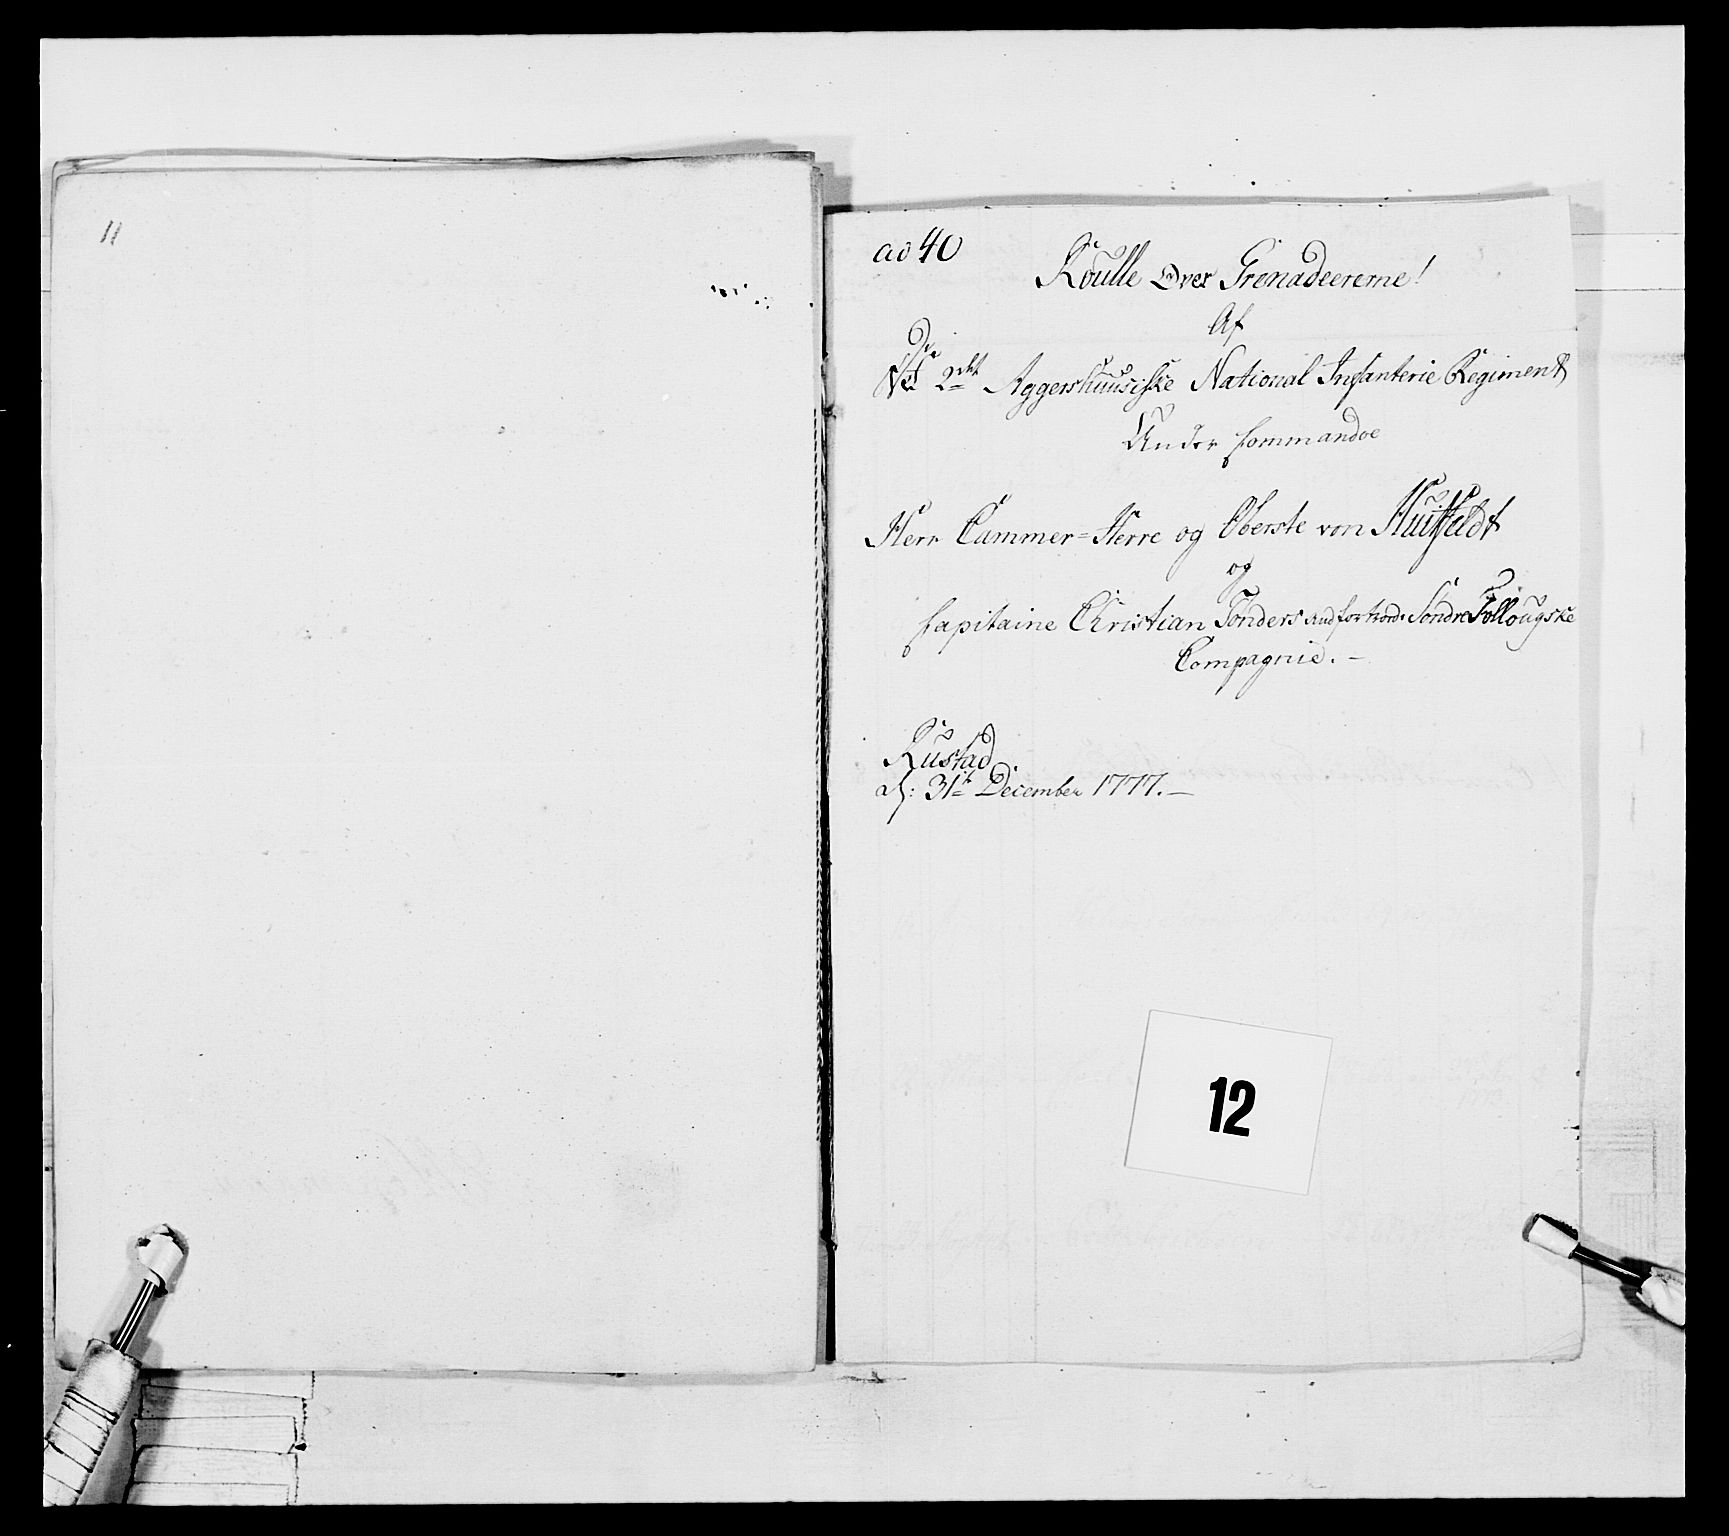 11
ad 40
Roulle Over Grenadeererne!
Af
Det 2det Aggershuusiske National Infanterie Regiment
Under Commandoe
Herr Cammer=Herre og Oberste von Huitfeldt
og
Capitaine Christian Tönders Söndre Follougske
Compagnie. —
Rustad
d: 31te December 1777. —
12